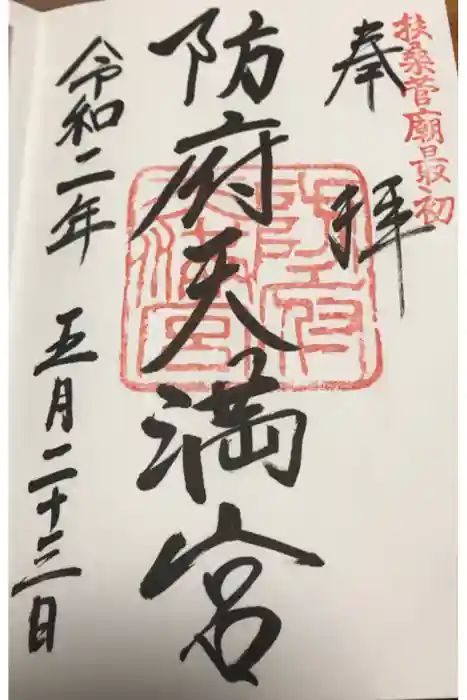 扶桑菅廟最初
奉拝
防府天満宮
防府天満宮
令和二年 五月二十三日